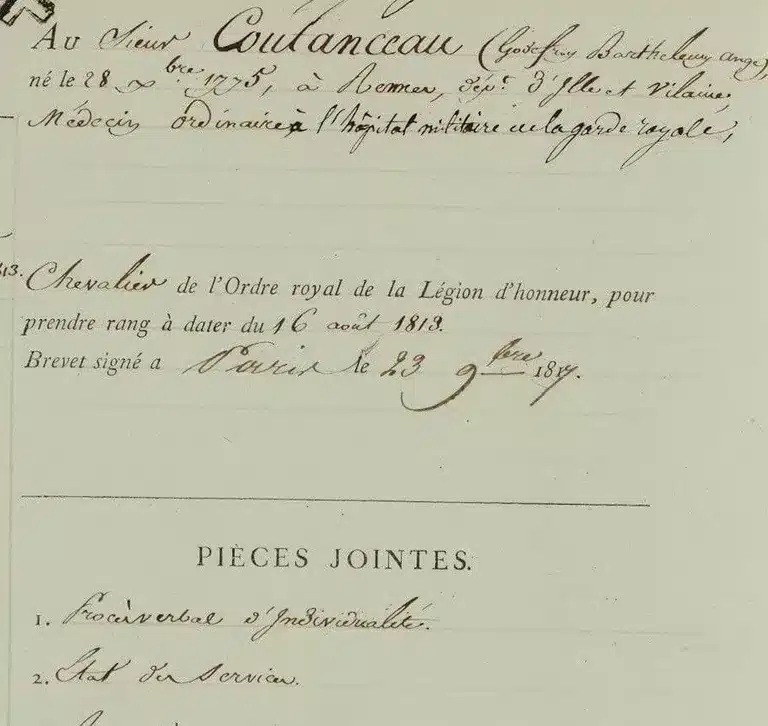 Au Sieur Coutanceau (Godefroy Barthelemy ange),
né le 28 xbre 1775, à Rennes, dépt. d'Ille et Vilaine,
Médecin ordinaire à l'hôpital militaire de la garde royale,
13. Chevalier de l'Ordre royal de la Légion d'honneur, pour
prendre rang à dater du 16 août 1813.
Brevet signé a Paris le 23 9bre 1817.
PIÈCES JOINTES.
1. Procès verbal d'Individualité.
2. Etat des services.